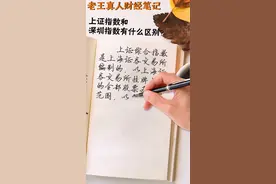 老王真人财经笔记
上证指数和
深圳指数有什么区别
上证综合指数
是上海证券交易所
编制的，以上海证
券交易所挂牌上市
的全部股票
范围，以